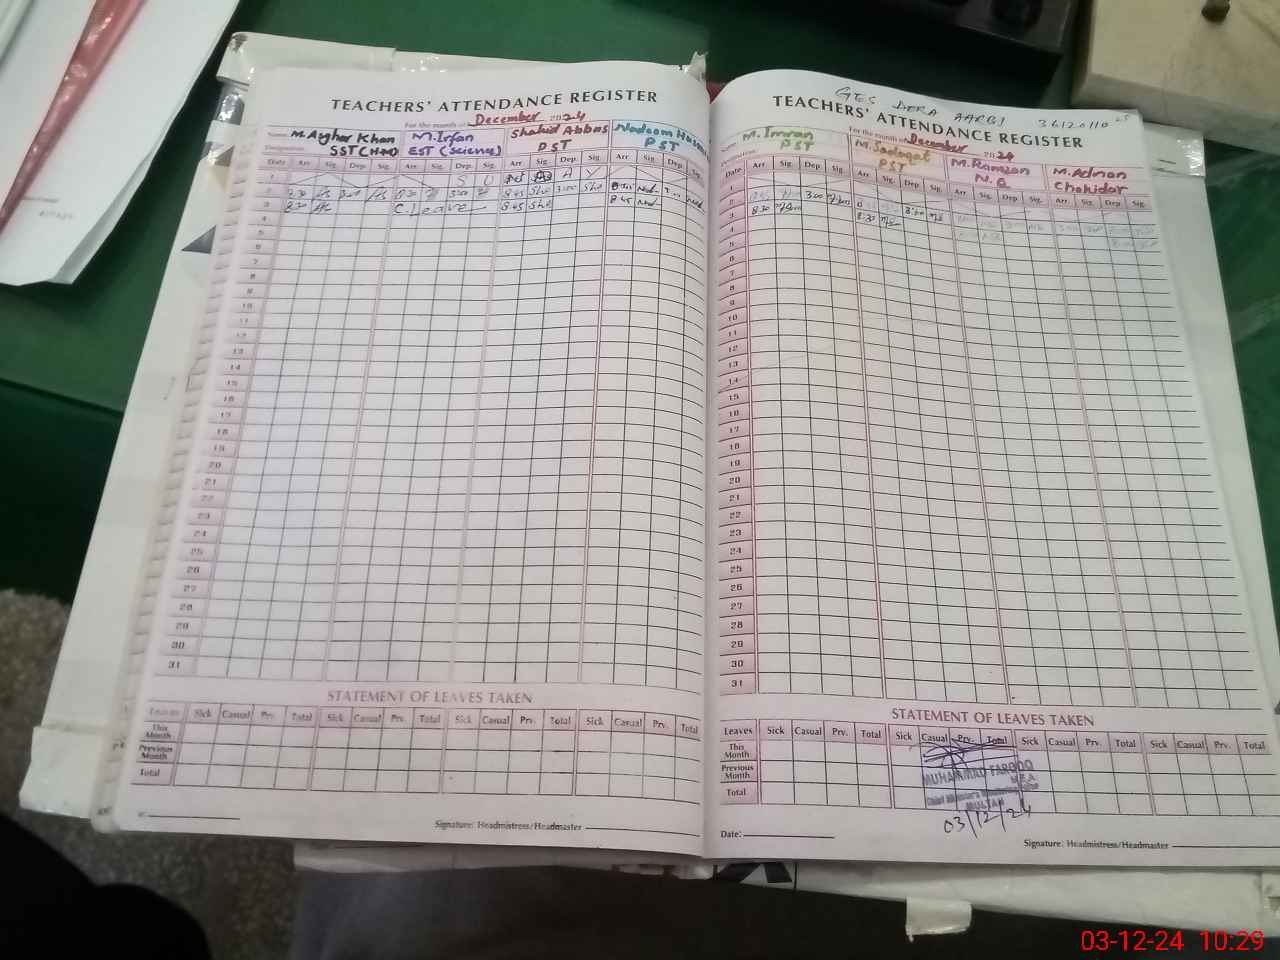 TEACHERS' ATTENDANCE REGISTER
For the month of December 2024
Name M. Asghar Khan M. Irfan Shahid Abbas Nadeem
Designation SST (HM) EST (Science) PST PST
Date Arr. Sig. Dep. Sig. Arr. Sig. Dep. Sig. Arr. Sig. Dep. Sig. Arr. Sig. Dep. Sig.
1 S U N D A Y
2 8:30 300 8:30 300 8:45 Sha 3:00 Sha 8:45 Nad
3 8:30 C. Leave 8:45 Sha 8:45 Nad
4
5
6
7
8
9
10
11
12
13
14
15
16
17
18
19
20
21
22
23
24
25
26
27
28
29
30
31
STATEMENT OF LEAVES TAKEN
Leaves Sick Casual Prv. Total Sick Casual Prv. Total Sick Casual Prv. Total Sick Casual Prv. Total
This Month
Previous Month
Total
Signature: Headmistress/Headmaster
GES DERA 36120110
TEACHERS' ATTENDANCE REGISTER
For the month of December 2024
M. Imran M. Sadaqat M. Ramzan M. Adnan
PST PST N.Q Chokidar
Date Arr. Sig. Dep. Sig. Arr. Sig. Dep. Sig. Arr. Sig. Dep. Sig. Arr. Sig. Dep. Sig.
1
2 300
3 8:30 8:30
4
5
6
7
8
9
10
11
12
13
14
15
16
17
18
19
20
21
22
23
24
25
26
27
28
29
30
31
STATEMENT OF LEAVES TAKEN
Leaves Sick Casual Prv. Total Sick Casual Prv. Total Sick Casual Prv. Total Sick Casual Prv. Total
This Month
Previous Month
Total
MUHAMMAD FAROOQ
M.E.A
MULTAN
03/12/24
Date:
Signature: Headmistress/Headmaster
03-12-24 10:29